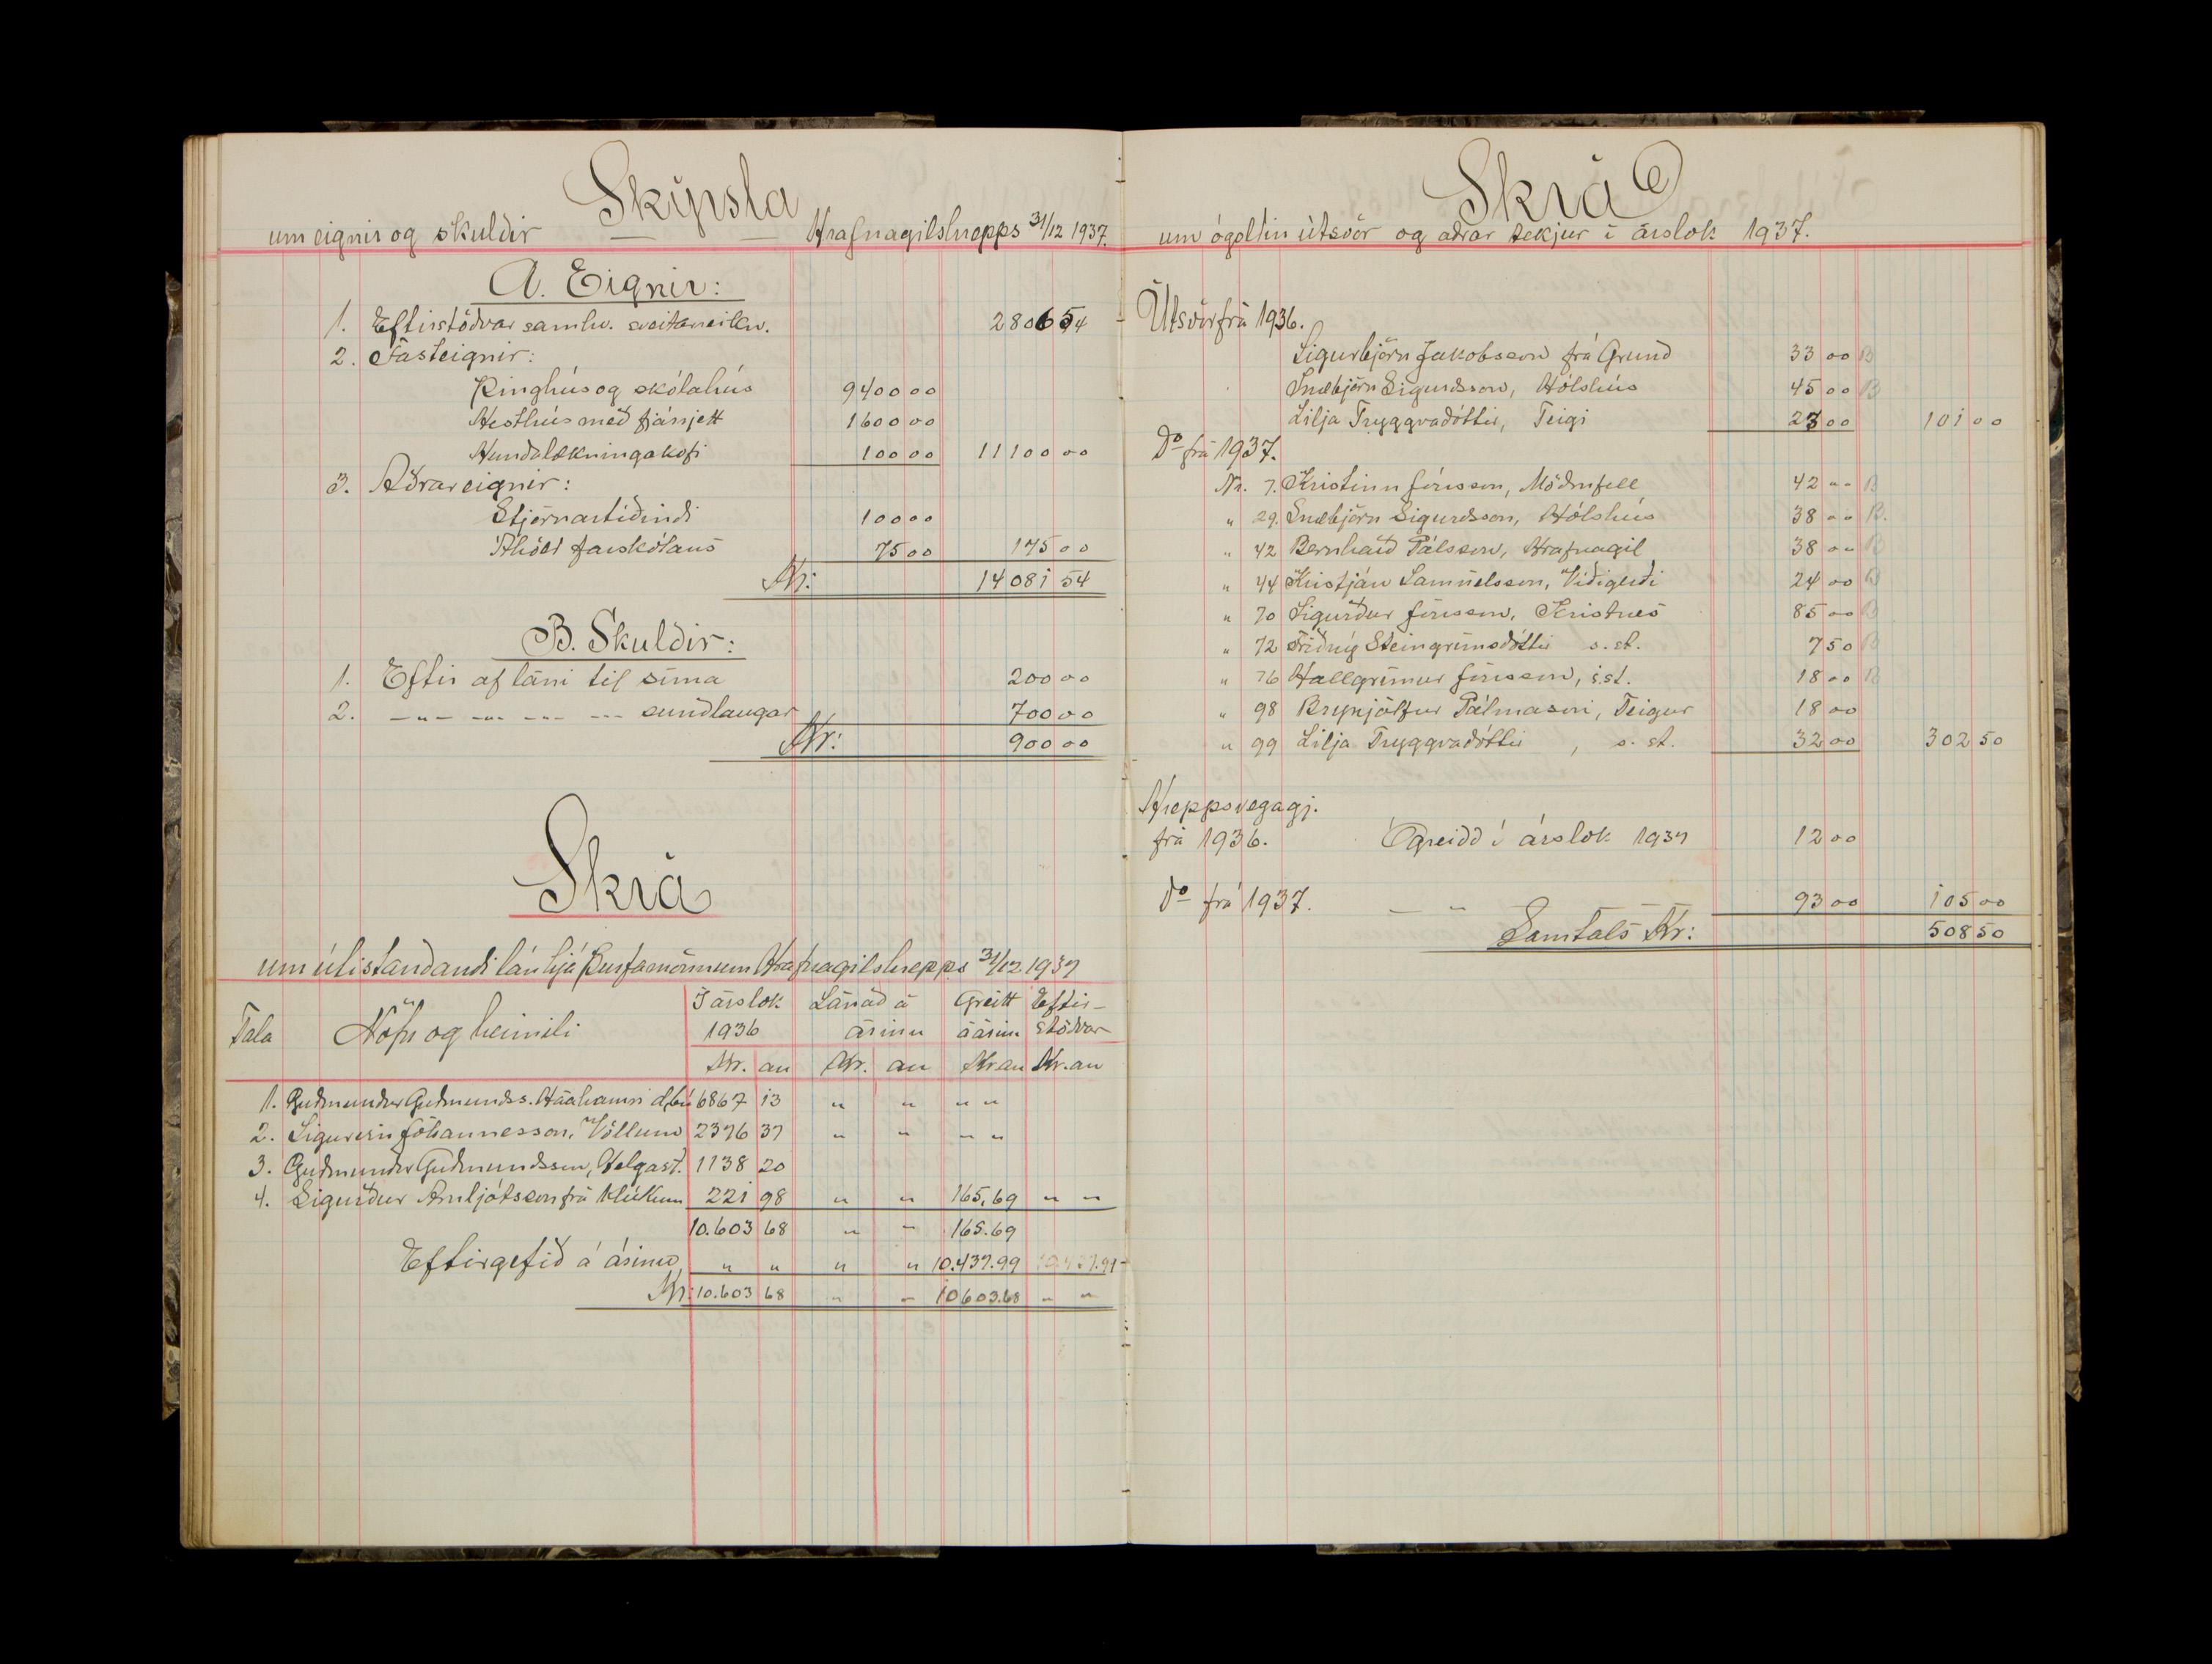 Skýrsla
um eignir og skuldir Hrafnagilshrepps 31/12 1937.
A. Eignir:
1. Eftirstöðvar samkv. sveitarreikn. 2806 54
2. Fasteignir:
Þinghús og skólahús 9400 00
Hesthús með fjárrjett 1600 00
Hundalækningakofi 100 00 11100 00
3. Aðrar eignir:
Stjórnartíðindi 100 00
Áhöld farskólans 75 00 175 00
Kr: 14081 54
B. Skuldir:
1. Eftir af láni til síma 200 00
2. —"— —"— —"— —"— sundlaugar 700 00
Kr: 900 00
Skrá
um útistandandi lán hjá þurfamönnum Hrafnagilshrepps 31/12 1937
Tala Nöfn og heimili Í árslok 1936 Lánað á árinu Greitt á árinu Eftir-stöðvar
Kr. au Kr. au Kr au Kr. au
1. Guðmundur Guðmundss. Hááhamri d,bú 6867 13 " " " "
2. Sigurvin Jóhannesson, Völlum 2376 37 " " " "
3. Guðmundur Guðmundsson, Helgast. 1138 20
4. Sigurður Arnljótsson frá Klúkum 221 98 " " 165,69 " "
10.603 68 " " 165.69
Eftirgefið á árinu " " " " 10.437.99 10.437.99
Kr: 10.603 68 " " 10603.68 " "
Skrá
um ógoldin útsvör og aðrar tekjur í árslok 1937.
Útsvör frá 1936.
Sigurbjörn Jakobsson frá Grund 33 00 B
Snæbjörn Sigurdsson, Hólshús 45 00 B
Lilja Tryggvadóttir, Teigi 23 00 101 00
Do frá 1937.
Nr. 7. Kristinn Jónsson, Möðrufell 42 00 B
" 29. Snæbjörn Sigurdsson, Hólshús 38 00 B.
" 42 Bernhard Pálsson, Hrafnagil 38 00 B
" 44 Kristján Samúelsson, Víðigerði 24 00 B
" 70 Sigurður Jónsson, Kristnes 85 00 B
" 72 Friðný Steingrímsdóttir s. st. 7 50 B
" 76 Hallgrímur Jónsson, s.st. 18 00 B
" 98 Brynjólfur Pálmason, Teigur 18 00
" 99 Lilja Tryggvadóttir, s. st. 32 00 302 50
Hreppsvegagj.
frá 1936. Ógreidd í árslok 1937 12 00
do frá 1937. — " — — 93 00 105 00
Samtals Kr: 508 50